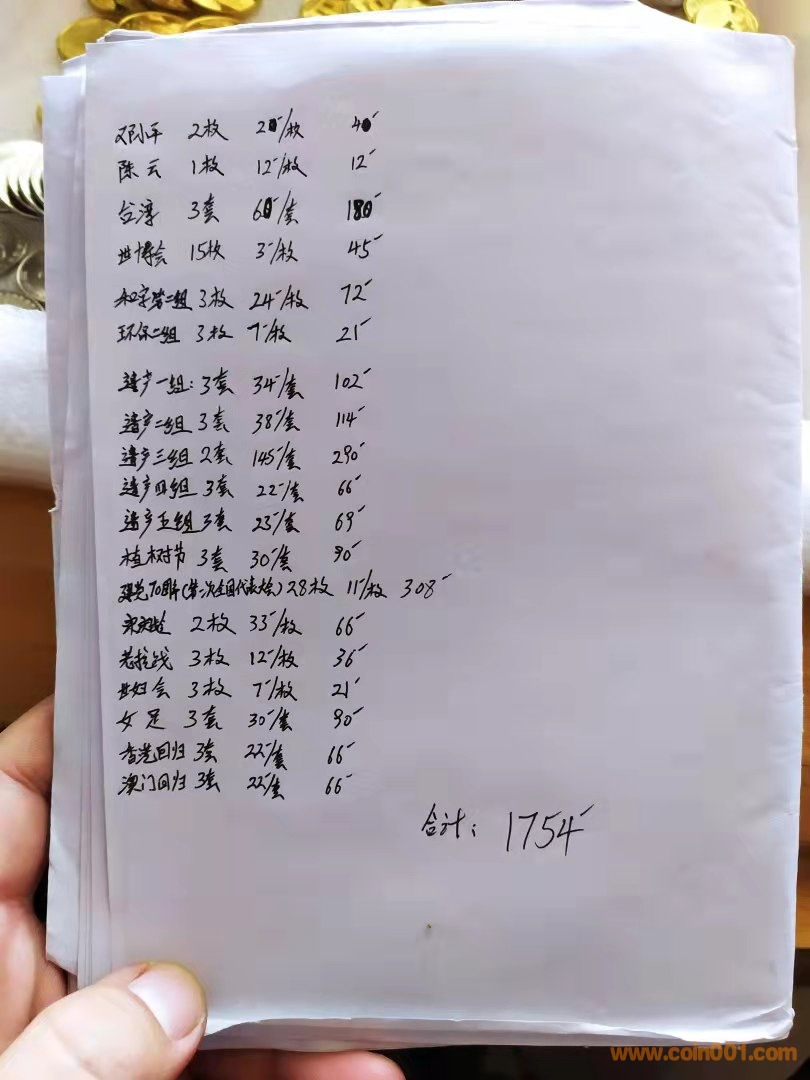 邓小平 2枚 20/枚 40
陈云 1枚 12/枚 12
台湾 3套 60/套 180
世博会 15枚 3/枚 45
和字第二组 3枚 24/枚 72
环保二组 3枚 7/枚 21
遗产一组: 3套 34/套 102
遗产二组 3套 38/套 114
遗产三组 2套 145/套 290
遗产四组 3套 22/套 66
遗产五组 3套 23/套 69
植树节 3套 30/套 90
建党70周年(第一次全国代表大会) 28枚 11/枚 308
宋庆龄 2枚 33/枚 66
老抗战 3枚 12/枚 36
世妇会 3枚 7/枚 21
女足 3套 30/套 90
香港回归 3套 22/套 66
澳门回归 3套 22/套 66
合计: 1754
www.coin001.com